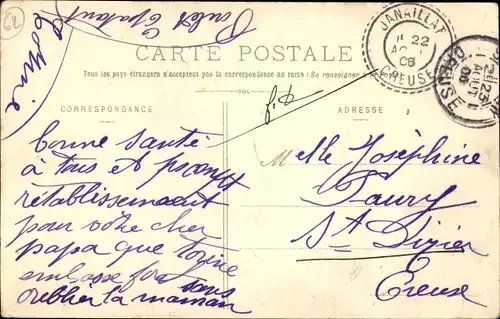 62
CARTE POSTALE
Tous les pays étrangers n'acceptent pas la correspondance au recto (Se renseigner à la poste)
JANAILLAT
22
08
CREUSE
CREUSE
CORRESPONDANCE
ADRESSE
Bonne santé
à tous et prompt
rétablissement
pour votre cher
papa que
embrasse sans
oublier la maman
Melle Joséphine
St Dizier
Creuse